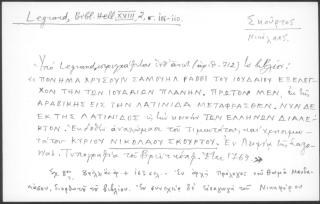 Legrand, Bibl. Hell. XVIII, 2, σ.
Σκούρτος
Νικόλαος.
Ὑπὸ Legrand, περιγράφεται ὑπ' ἀριθ. 712) τὸ βιβλίον:
« ΠΟΝΗΜΑ ΧΡΥΣΟΥΝ ΣΑΜΟΥΗΛ ΡΑΒΒΙ ΤΟΥ ΙΟΥΔΑΙΟΥ ΕΞΕΛΕΓ-
ΧΟΝ ΤΗΝ ΤΩΝ ΙΟΥΔΑΙΩΝ ΠΛΑΝΗΝ. ΠΡΩΤΟΝ ΜΕΝ, ἐκ τῆς
ΑΡΑΒΙΚΗΣ ΕΙΣ ΤΗΝ ΛΑΤΙΝΙΔΑ ΜΕΤΑΦΡΑΣΘΕΝ. ΝΥΝ ΔΕ
ΕΚ ΤΗΣ ΛΑΤΙΝΙΔΟΣ εἰς τὴν κοινὴν ΤΩΝ ΕΛΛΗΝΩΝ ΔΙΑΛΕ-
ΚΤΟΝ. Ἐκδοθὲν ἀναλώμασι τοῦ Τιμιωτάτου, καὶ χρησιμω-
τάτου ΚΥΡΙΟΥ ΝΙΚΟΛΑΟΥ ΣΚΟΥΡΤΟΥ. Ἐν Λειψίᾳ τῆς
Τυπογραφίᾳ τοῦ Βρεϊτκόπφ. Ἔτει 1769. »
Σχ. 8ον, σελ. Ἐν ἀρχῇ πρόλογος τοῦ Θωμᾶ Μανδα-
κάσου, διορθωτοῦ τοῦ βιβλίου. Ἐν συνεχείᾳ δὲ εἰσαγωγὴ τοῦ Νικηφόρου